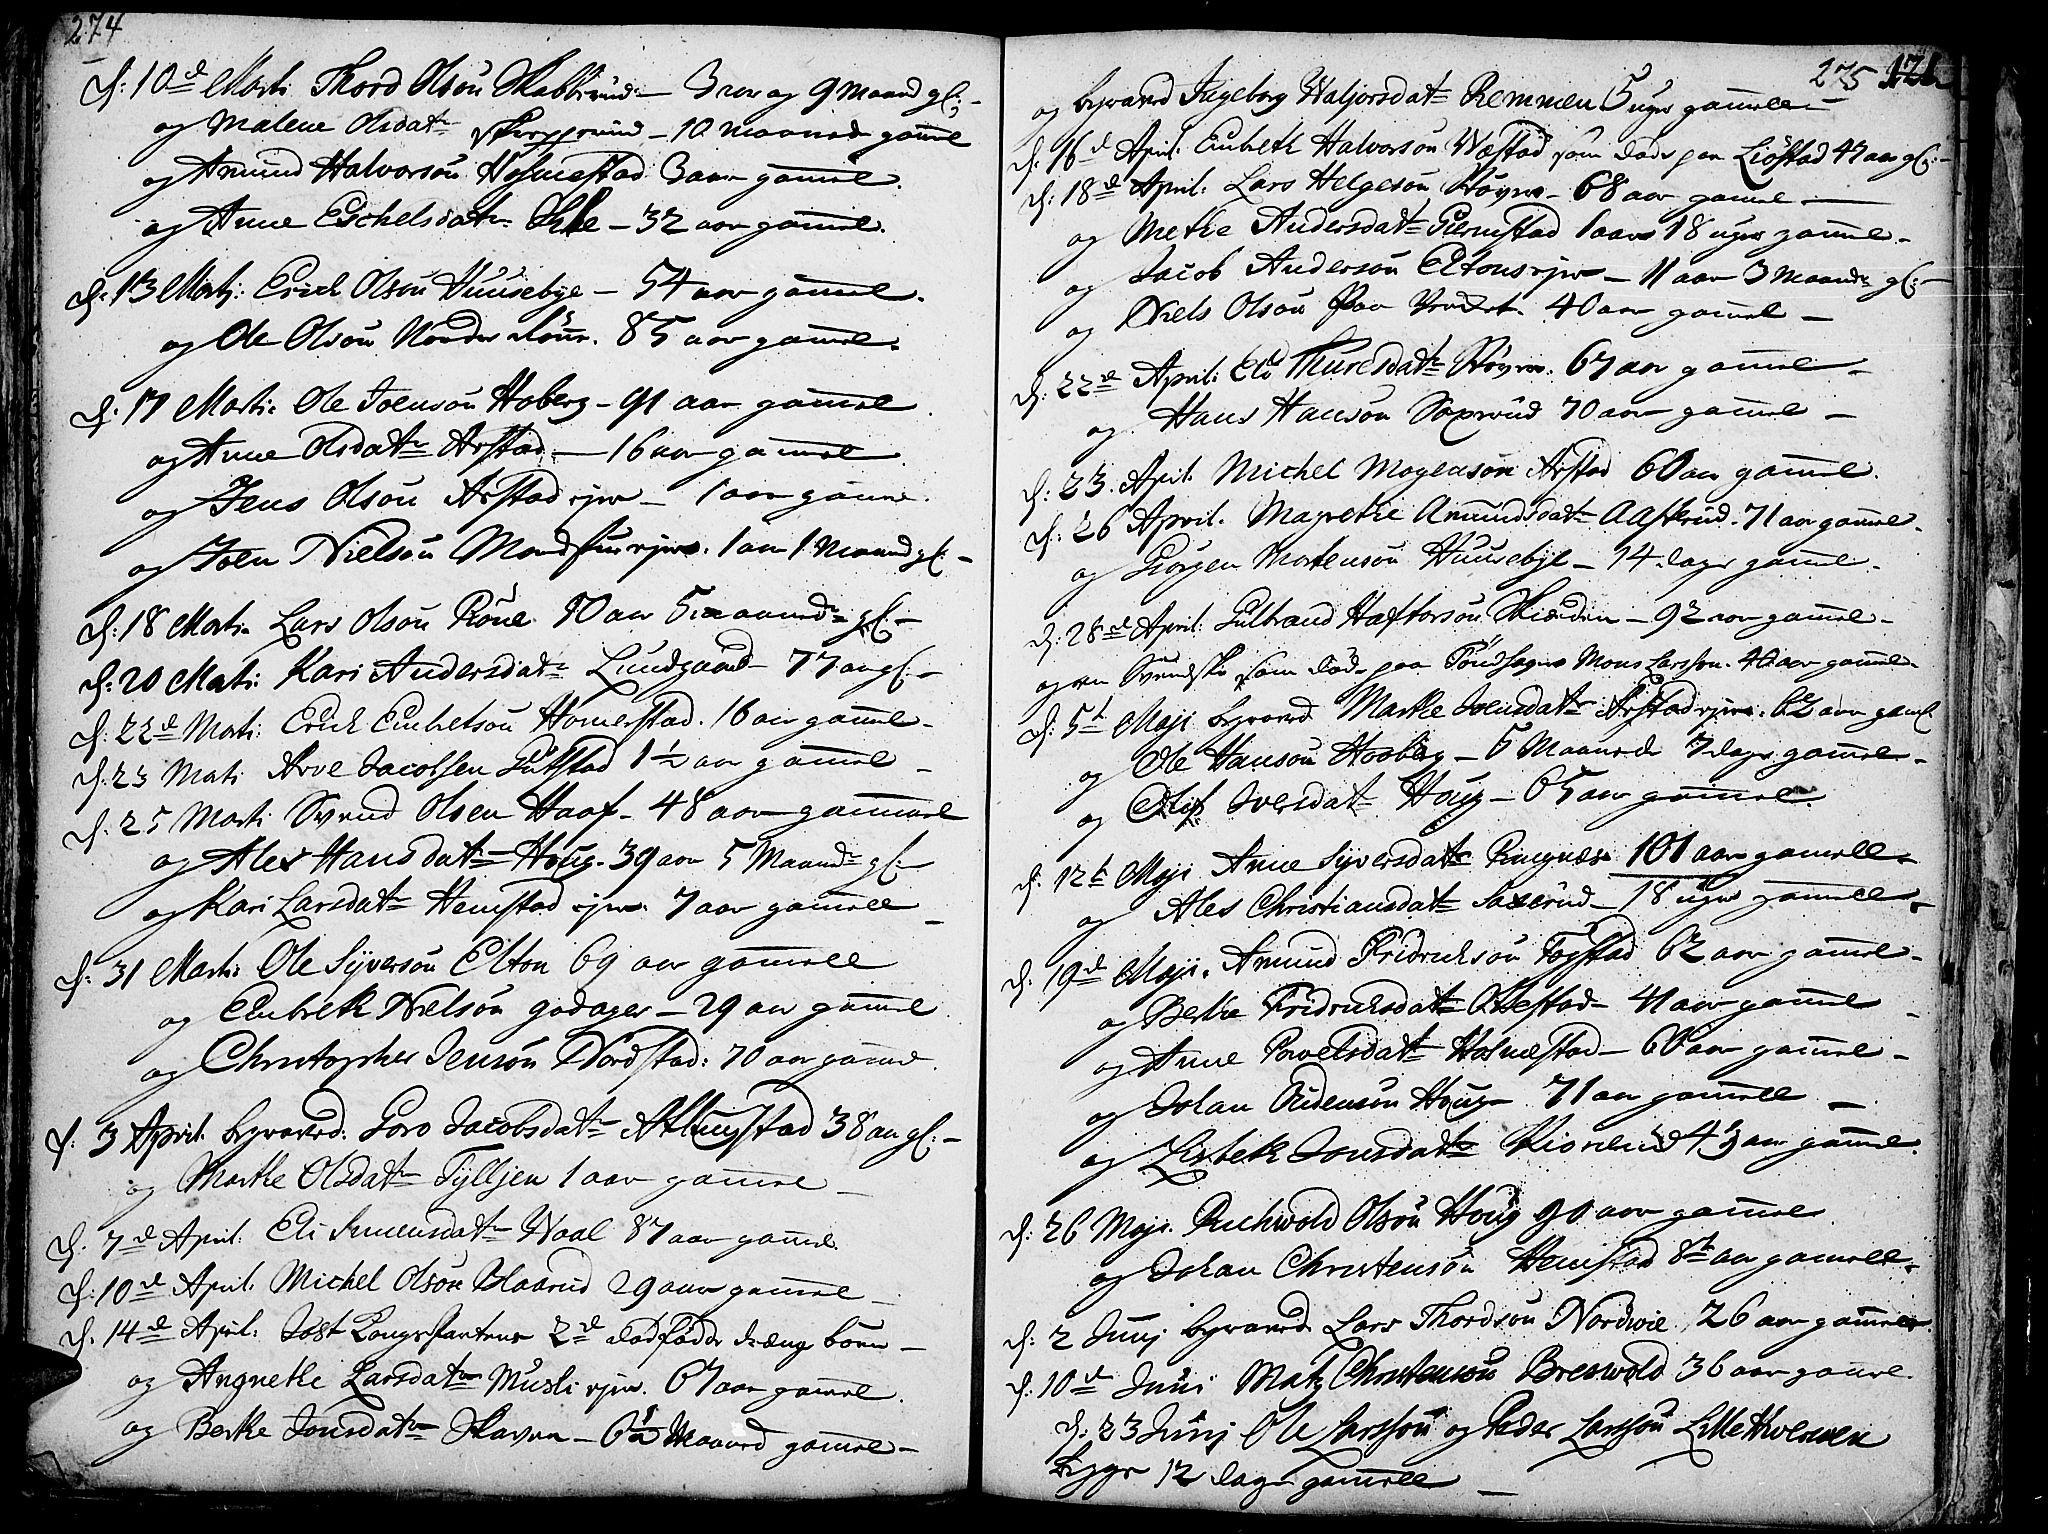 274
d: 10d Marti Thord Olsøn Skabberud – 3 aar og 9 Maand gl: –
og Malene Olsdatr – 10 maaneder gaml
og Amund Halvorsøn Holmestad 3 aar gaml.
og Anne Eschelsdatr – 32 aar gaml.
d: 13 Martj: Erich Olsøn Huusebye – 54 aar gaml.
og Ole Olsøn Nordre Røne. 85 aar gaml.
d: 17 Marti Ole Joensøn Hoberg – 91 aar gaml
og Anne Olsdatr Arstad – 16 aar gaml
og Jens Olsøn Arstad ejer – 1 aar gaml.
og Joen Nielsøn ejer. 1 aar 1 Maand gl: –
d: 18 Marti Lars Olsøn Røne 70 aar 5 maaneder gl: –
d: 20 Marti: Kari Andersdatr Lundgaard – 77 aar gl: –
d: 22d Marti: Erich Embretsøn Homerstad. 16 aar gaml –
d: 23 Marti Arve Jacobsen Gutstad 1½ aar gaml –
d: 25 Marti Svend Olsen Haaf – 48 aar gammel
og Ales Hansdatr Houg. 39 aar 5 Maander gl: –
og Kari Larsdatr Hemstad ejer. 7 aar gamell –
d: 31 Marti Ole Syversøn Elton 69 aar gamell
og Embrek Nielsøn godager – 29 aar gaml
og Christopher Jensøn Nordstad: 70 aar gaml.
d: 3 April begraved: Goro Jacobsdatr Atlungstad 38 aar gl: –
og Marthe Olsdatr Tylljen 1 aar gaml –
d. 7d April: Eli Simensdatr Waal 87 aar gaml.
d: 10d April: Michel Olsøn Blaarud 29 aar gaml –
d. 14d April: Jost 2d dødfødde dreng børn –
og Angnethe Larsdatr Musli ejer. 67 aar gaml.
og Berthe Jonsdatr Skaven – 6½ Maaned gaml –
275 121
og begraved Ingeborg Haljorsdatr Remmen 5 uger gamell –
d: 16d April: Embreth Halvorsøn Wæstad som døde paa Liøstad 47 aar gl: –
d: 18d April: Lars Helgesøn Røyne – 68 aar gaml –
og Methe Andersdatr Giernstad 1 aar 18 uger gaml –
og Jacob Andersøn Eltonsejer – 11 aar 3 Maander gl: –
og Niels Olsøn paa 40 aar gaml –
d: 22d April: Eli Thuresdatr Røyne. 67 aar gaml –
og Hans Hansøn Saxerud 70 aar gaml –
d: 23. April Michel Mogensøn Arstad 60 aar gaml.
d: 26 April. Magrethe Amundsdatr Aasterud. 71 aar gaml.
og Giørgen Mortensøn Huusebye – 14 dager gaml.
d: 28d April: Gulbrand Haftorsøn – 92 aar gaml –
og en Svensk som døde paa Mons Larsson. 40 aar gaml.
d: 5t Maji begraved Marthe Joensdatr Arstad ejer. 62 aar gaml
og Ole Hansøn Hooberg – 5 Maaneder 7 dager gaml –
og Olif Iversdatr Houg – 65 aar gaml.
d: 12t Maji Anne Syversdatr Ringnæs 101 aar gamell –
og Ales Christiansdatr Saxerud – 18 uger gamell –
d: 19d Maji. Amund Fridriksøn Fogstad 62 aar gaml –
og Berthe Fridriksdatr – 41 aar gaml –
og Anne Povelsdatr Holmestad – 60 aar gaml –
og Johan Evidensøn Houg – 71 aar gamell –
og Lisbeth Jonsdatr 43 aar gaml.
d: 26 Maji Richvold Olsøn Houg 90 aar gaml
og Johan Christensøn Hemstad 8t aar gamell.
d: 2 Junj begraved Lars Thordsøn Nordvie 26 aar gamell.
d: 10d Junii Matz Christensøn Breswold 36 aar gaml.
d: 23 Junij Ole Larssøn og Peder Larssøn Lille Hverven
begge 12 dager gamell –